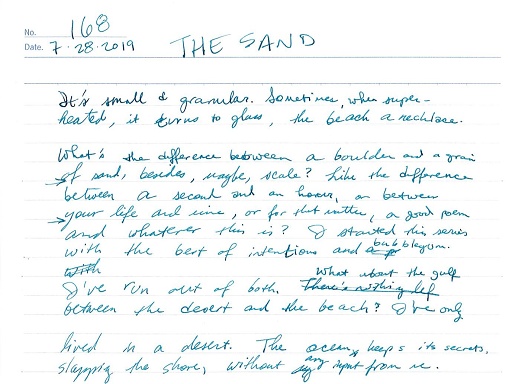 No. 168
Date. 7-28-2019 THE SAND
It's small & granular. Sometimes, when super-
heated, it turns to glass, the beach a necklace.
What's the difference between a boulder and a grain
of sand, besides, maybe, scale? Like the difference
between a second and an hour, or between
your life and mine, or for that matter, a good poem
and whatever this is? I started this series
with the best of intentions and bubblegum.
with What about the gulf
I've run out of both. There's nothing lef
between the desert and the beach? I've only
lived in a desert. The ocean keeps its secrets,
slapping the shore, without any input from me.